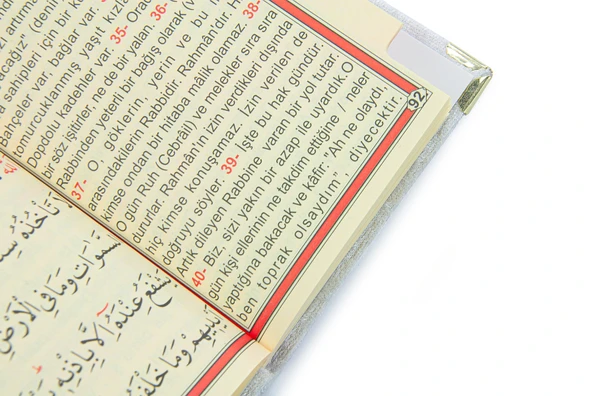 acağız" (denil
sahipleri için bir
var, bağlar var.
tomurcuklanmış yaşıt kızl
Dopdolu kadehler var. 35- Orad
bir söz işitirler, ne de bir yalan. 36-
Rabbinden yeterli bir bağış olarak (v
37- O, göklerin, yerin ve bu i
arasındakilerin Rabbidir. Rahmân'dır. H
kimse ondan bir hitaba mâlik olamaz. 38-
O gün Ruh (Cebrâil) ve melekler sıra sıra
dururlar. Rahmân'ın izin verdikleri dışında
hiç kimse konuşamaz. İzin verilen de
doğruyu söyler. 39- İşte bu hak gündür.
Artık dileyen Rabbine varan bir yol tutar.
40- Biz, sizi yakın bir azap ile uyardık. O
gün kişi ellerinin ne takdim ettiğine / neler
yaptığına bakacak ve kâfir: "Ah ne olaydı,
ben toprak olsaydım", diyecektir.
92
تَأْخُذُهُ
وَمَا فِي الْاَرْضِ
يَشْفَعُ عِنْدَهُٓ اِلَّا بِاِذْنِهٖ
وَمَا